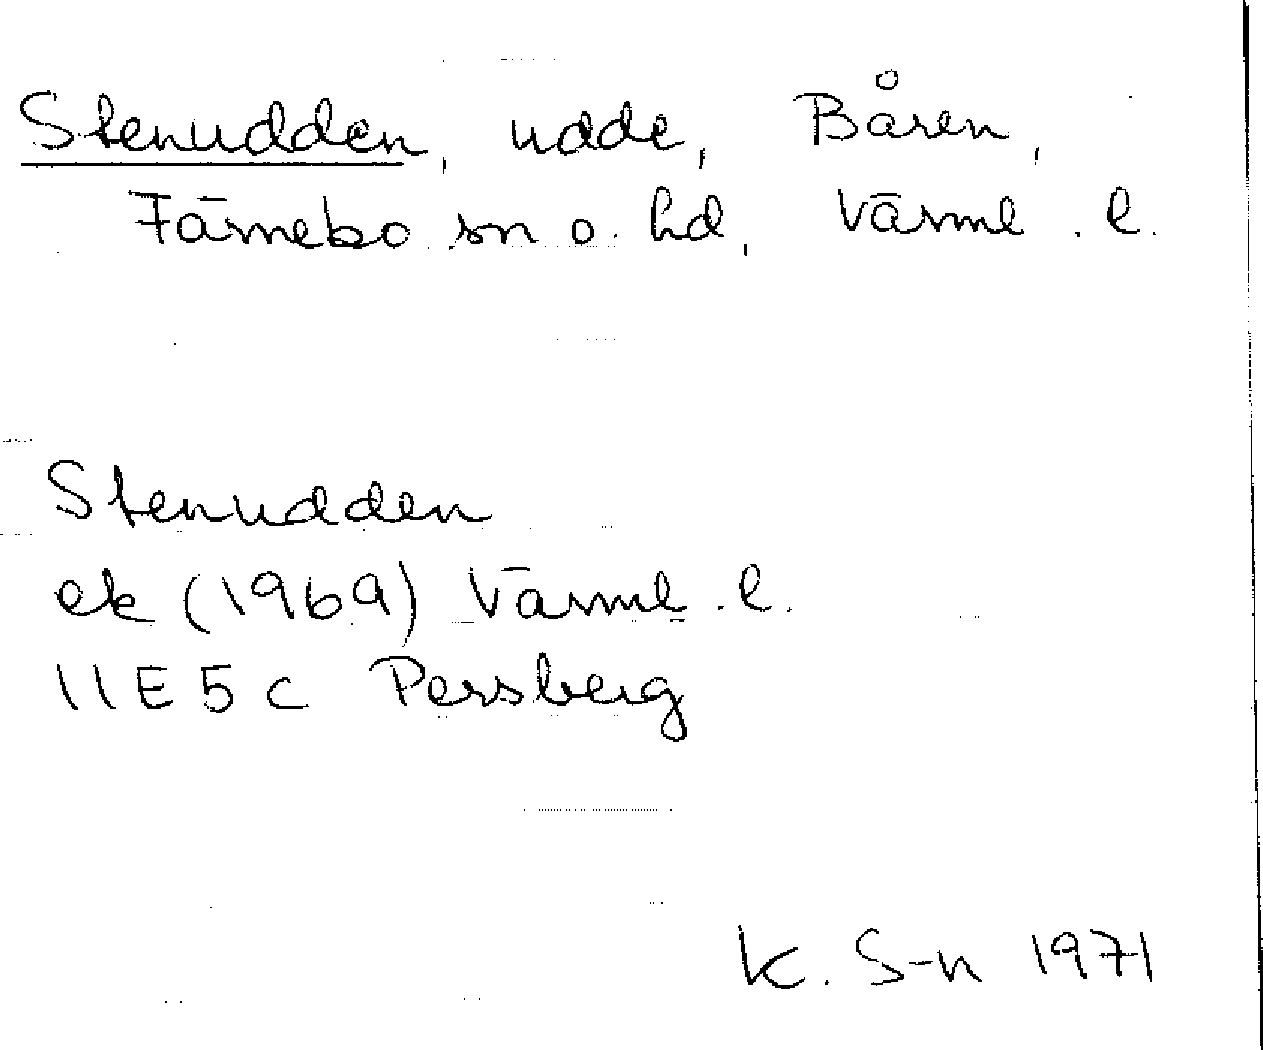 Stenudden, udde, Båren,
Färnebo sn o. hd, Värml. l.
Stenudden
ek (1969) Värml. l.
11E5c Persberg
K. S-n 1971